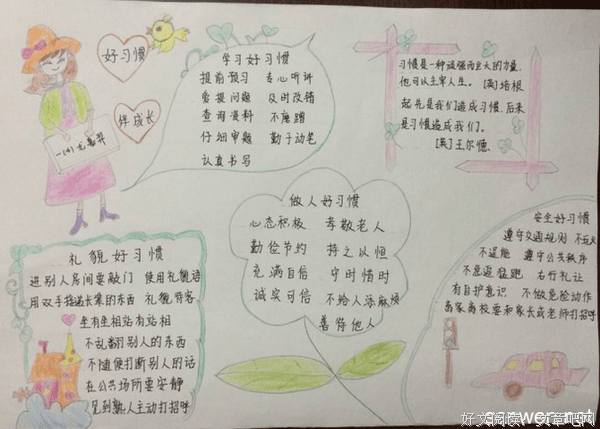 好习惯
伴成长
学习好习惯
提前预习 专心听讲
爱提问题 及时改错
查阅资料 不磨蹭
仔细审题 勤于动笔
认真书写
习惯是一种顽强而巨大的力量
他可以主宰人生。[英]培根
起先是我们造成习惯,后来
是习惯造成我们。
[英]王尔德
做人好习惯
心态积极 孝敬老人
勤俭节约 持之以恒
充满自信 守时惜时
诚实可信 不给人添麻烦
善待他人
礼貌好习惯
进别人房间要敲门 使用礼貌语
用双手接递长辈的东西 礼貌待客
坐有坐相站有站相
不乱翻别人的东西
不随便打断别人的话
在公共场所要安静
见到熟人主动打招呼
安全好习惯
遵守交通规则 不玩火
不逞能 遵守公共秩序
不追逐猛跑 右行礼让
有自护意识 不做危险动作
离家离校要和家长或老师打招呼
好文阅读·文章吧网
sanwen.net